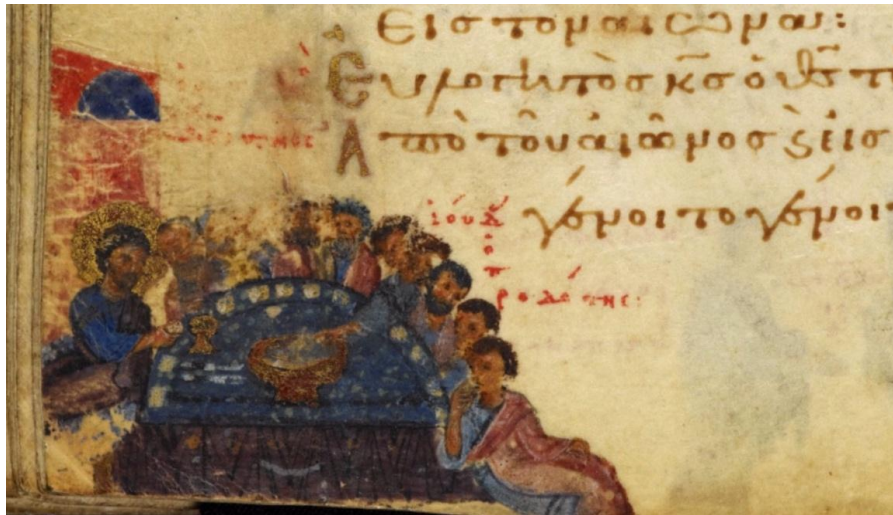 εἰς τὸν αἰῶνα:
Εὐλογητὸς κ̅ς ὁ θ̅ς
Ἀπὸ τοῦ αἰῶνος ϗ εἰς
γένοιτο γένοιτ
ἰούδ
ο
π
ροδότης: